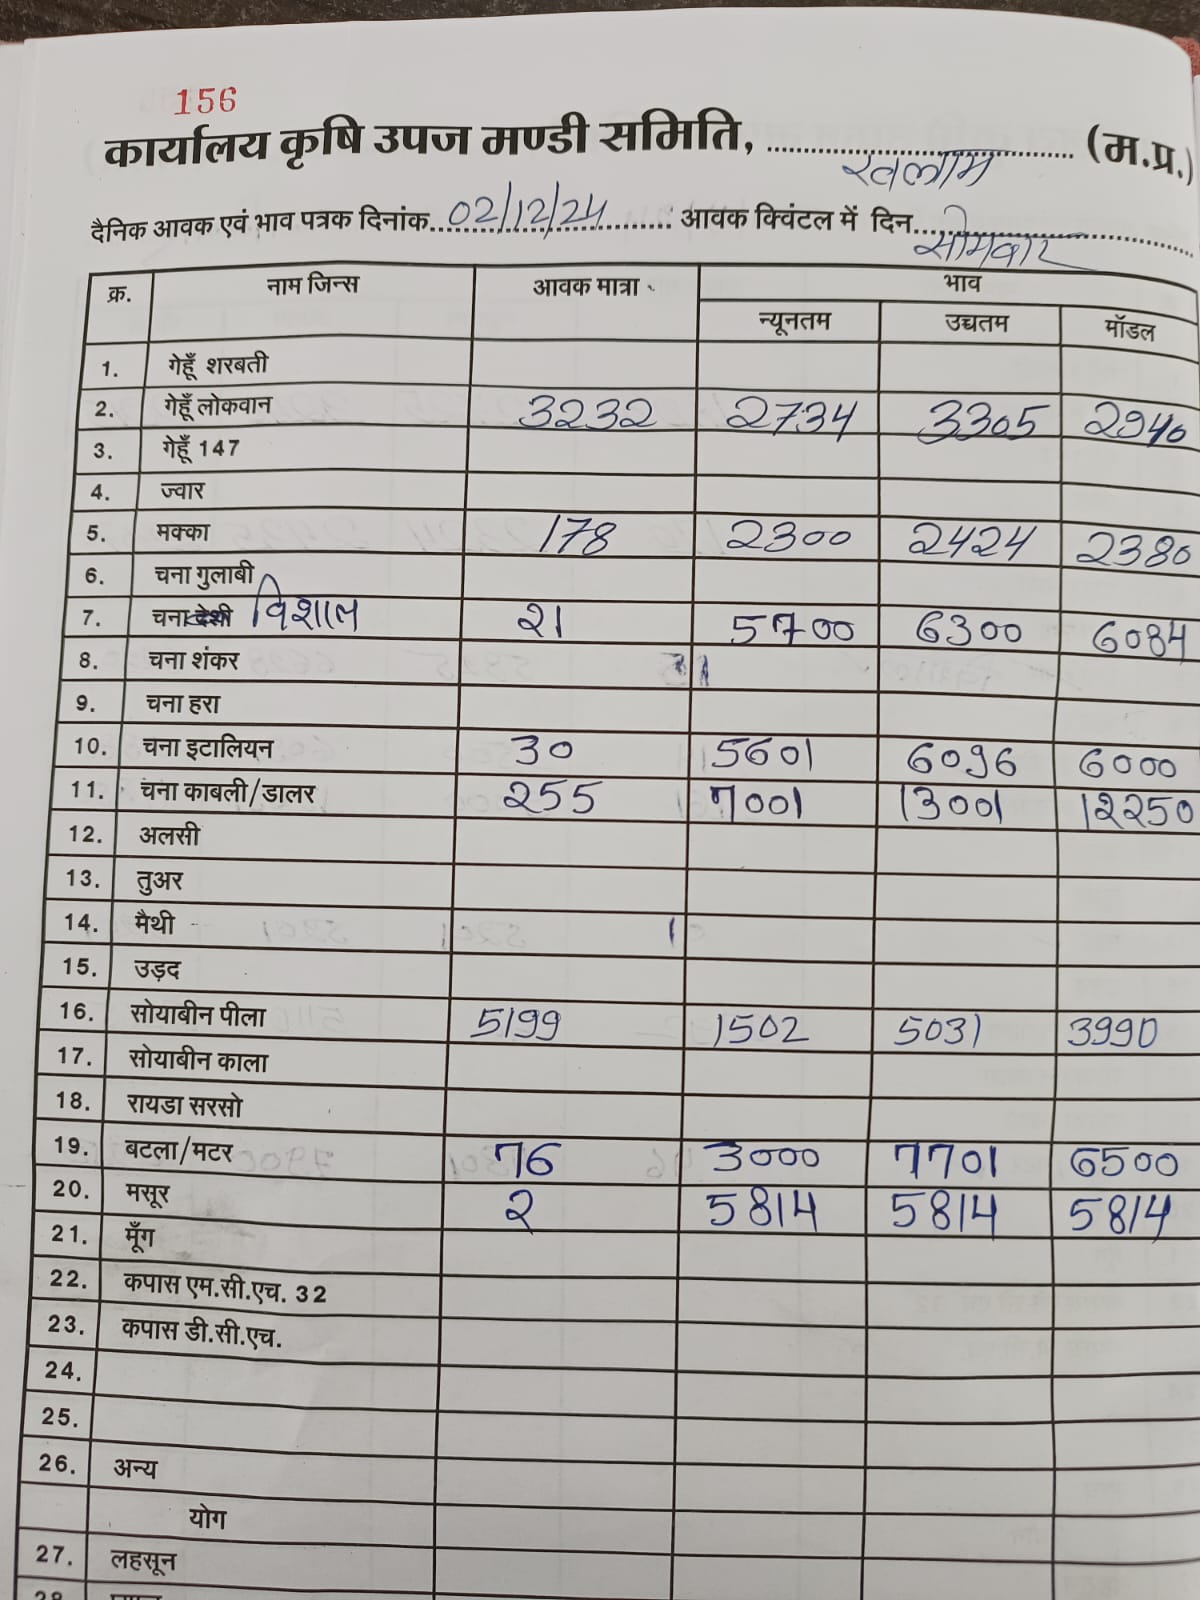 156
कार्यालय कृषि उपज मण्डी समिति, रतलाम (म.प्र.)
दैनिक आवक एवं भाव पत्रक दिनांक 02/12/24 : आवक क्विंटल में दिन सोमवार
क्र. नाम जिन्स आवक मात्रा भाव
न्यूनतम उच्चतम मॉडल
1. गेहूँ शरबती
2. गेहूँ लोकवान 3232 2734 3305 2940
3. गेहूँ 147
4. ज्वार
5. मक्का 178 2300 2424 2380
6. चना गुलाबी
7. चना देशी विशाल 21 5700 6300 6084
8. चना शंकर
9. चना हरा
10. चना इटालियन 30 5601 6096 6000
11. चना काबली/डालर 255 7001 13001 12250
12. अलसी
13. तुअर
14. मैथी
15. उड़द
16. सोयाबीन पीला 5199 1502 5031 3990
17. सोयाबीन काला
18. रायडा सरसो
19. बटला/मटर 76 3000 7701 6500
20. मसूर 2 5814 5814 5814
21. मूँग
22. कपास एम.सी.एच. 32
23. कपास डी.सी.एच.
24.
25.
26. अन्य
योग
27. लहसून
28.